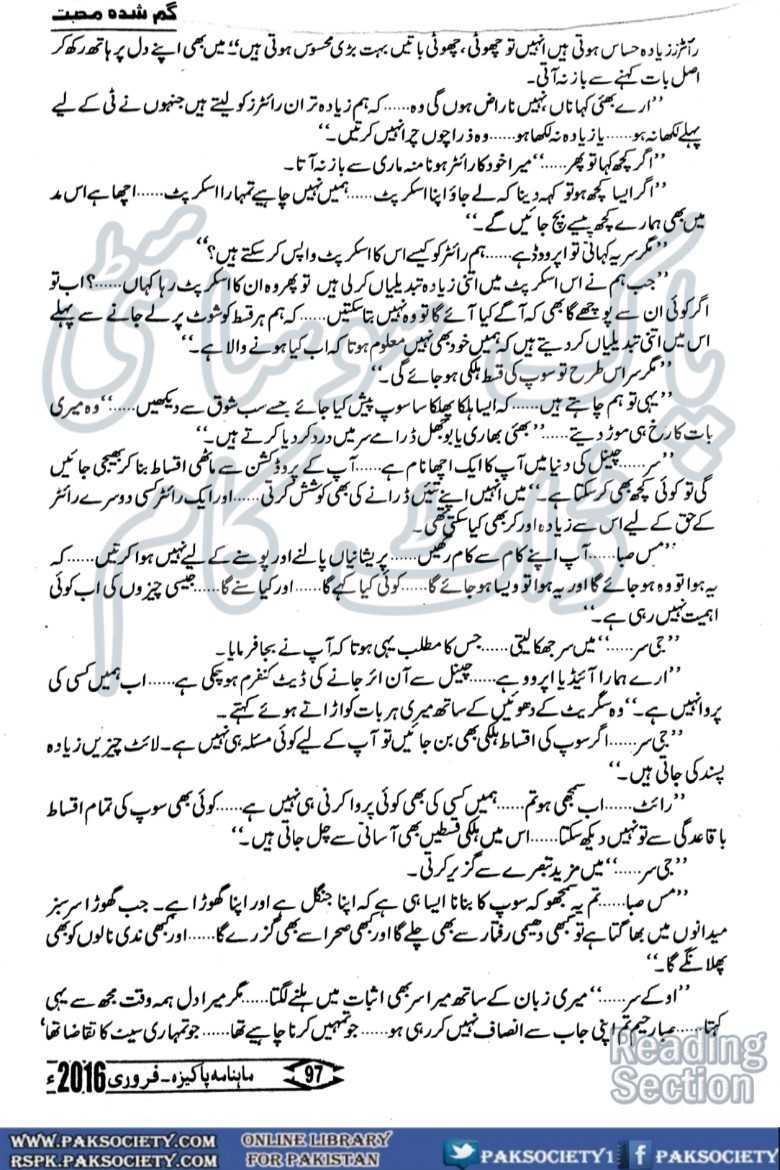 گم شدہ محبت
رائٹرز زیادہ حساس ہوتی ہیں انہیں تو چھوٹی، چھوٹی باتیں بہت بڑی محسوس ہوتی ہیں‘‘ میں بھی اپنے دل پر ہاتھ رکھ کر
اصل بات کہنے سے باز نہ آتی۔
’’ارے بھئی کہا ناں نہیں ناراض ہوں گی وہ...... کہ ہم زیادہ تر ان رائٹرز کو لیتے ہیں جنہوں نے ٹی کے لیے
پہلے لکھا نہ ہو...... یا زیادہ نہ لکھا ہو...... وہ ذرا چوں چرا نہیں کرتیں۔‘‘
’’اگر کچھ کہا تو پھر......‘‘ میرا خود کا رائٹر ہونا منہ ماری سے باز نہ آتا۔
’’اگر ایسا کچھ ہو تو کہہ دینا کہ لے جاؤ اپنا اسکرپٹ...... ہمیں نہیں چاہیے تمہارا اسکرپٹ...... اچھا ہے اس مد
میں بھی ہمارے کچھ پیسے بچ جائیں گے۔‘‘
’’مگر سر یہ کہانی تو اپروڈ ہے...... ہم رائٹر کو کیسے اس کا اسکرپٹ واپس کر سکتے ہیں؟‘‘
’’جب ہم نے اس اسکرپٹ میں اتنی زیادہ تبدیلیاں کر لی ہیں تو پھر وہ ان کا اسکرپٹ رہا کہاں......؟ اب تو
اگر کوئی ان سے پوچھے گا بھی کہ آگے کیا آئے گا تو وہ نہیں بتا سکتیں...... کہ ہم ہر قسط کو شوٹ پر لے جانے سے پہلے
اس میں اتنی تبدیلیاں کر دیتے ہیں کہ ہمیں خود بھی نہیں معلوم ہوتا کہ اب کیا ہونے والا ہے۔‘‘
’’مگر سر اس طرح تو سوپ کی قسط ہلکی ہو جائے گی۔‘‘
’’یہی تو ہم چاہتے ہیں...... کہ ایسا ہلکا پھلکا سا سوپ پیش کیا جائے جسے سب شوق سے دیکھیں......‘‘ وہ میری
بات کا رخ ہی موڑ دیتے...... ’’بھئی بھاری یا بوجھل ڈرامے سر میں درد کر دیا کرتے ہیں۔‘‘
’’سر...... چینل کی دنیا میں آپ کا ایک اچھا نام ہے...... آپ کے پروڈکشن سے ماٹھی اقساط بنا کر بھیجی جائیں
گی تو کوئی کچھ بھی کر سکتا ہے۔‘‘ میں انہیں اپنے تئیں ڈرانے کی بھی کوشش کرتی...... اور ایک رائٹر کسی دوسرے رائٹر
کے حق کے لیے اس سے زیادہ اور کر بھی کیا سکتی تھی۔
’’مس صبا...... آپ اپنے کام سے کام رکھیں...... پریشانیاں پالنے اور پوسنے کے لیے نہیں ہوا کرتیں...... کہ
یہ ہوا تو وہ ہو جائے گا اور یہ ہوا تو ویسا ہو جائے گا...... کوئی کیا کہے گا...... اور کیا سنے گا...... جیسی چیزوں کی اب کوئی
اہمیت نہیں رہی ہے۔‘‘
’’جی سر......‘‘ میں سر جھکا لیتی...... جس کا مطلب یہی ہوتا کہ آپ نے بجا فرمایا۔
’’ارے ہمارا آئیڈیا اپروو ہے...... چینل سے آن ائر جانے کی ڈیٹ کنفرم ہو چکی ہے...... اب ہمیں کسی کی
پروا نہیں ہے۔‘‘ وہ سگریٹ کے دھوئیں کے ساتھ میری ہر بات کو اڑاتے ہوئے کہتے۔
’’جی سر...... اگر سوپ کی اقساط ہلکی بھی بن جائیں تو آپ کے لیے کوئی مسئلہ ہی نہیں ہے۔ لائٹ چیزیں زیادہ
پسند کی جاتی ہیں۔‘‘
’’رائٹ...... اب سمجھی ہو تم...... ہمیں کسی کی بھی کوئی پروا کرنی ہی نہیں ہے...... کوئی بھی سوپ کی تمام اقساط
باقاعدگی سے تو نہیں دیکھ سکتا...... اس میں ہلکی قسطیں بھی آسانی سے چل جاتی ہیں۔‘‘
’’جی سر......‘‘ میں مزید تبصرے سے گریز کرتی۔
’’مس صبا...... تم یہ سمجھو کہ سوپ کا بنانا ایسا ہی ہے کہ اپنا جنگل ہے اور اپنا گھوڑا ہے۔ جب گھوڑا سرسبز
میدانوں میں بھاگتا ہے تو کبھی دھیمی رفتار سے بھی چلے گا اور کبھی صحرا سے بھی گزرے گا...... اور کبھی ندی نالوں کو بھی
پھلانگے گا۔‘‘
’’اوکے سر......‘‘ میری زبان کے ساتھ میرا سر بھی اثبات میں ہلنے لگتا...... مگر میرا دل ہمہ وقت مجھ سے یہی
کہتا...... صبا رحیم تم اپنی جاب سے انصاف نہیں کر رہی ہو...... جو تمہیں کرنا چاہیے تھا...... جو تمہاری سیٹ کا تقاضا تھا‘
97 ماہنامہ پاکیزہ۔ فروری 2016ء
پاک سوسائٹی
ڈاٹ کام
Reading
Section
WWW.PAKSOCIETY.COM ONLINE LIBRARY PAKSOCIETY1 PAKSOCIETY
RSPK.PAKSOCIETY.COM FOR PAKISTAN